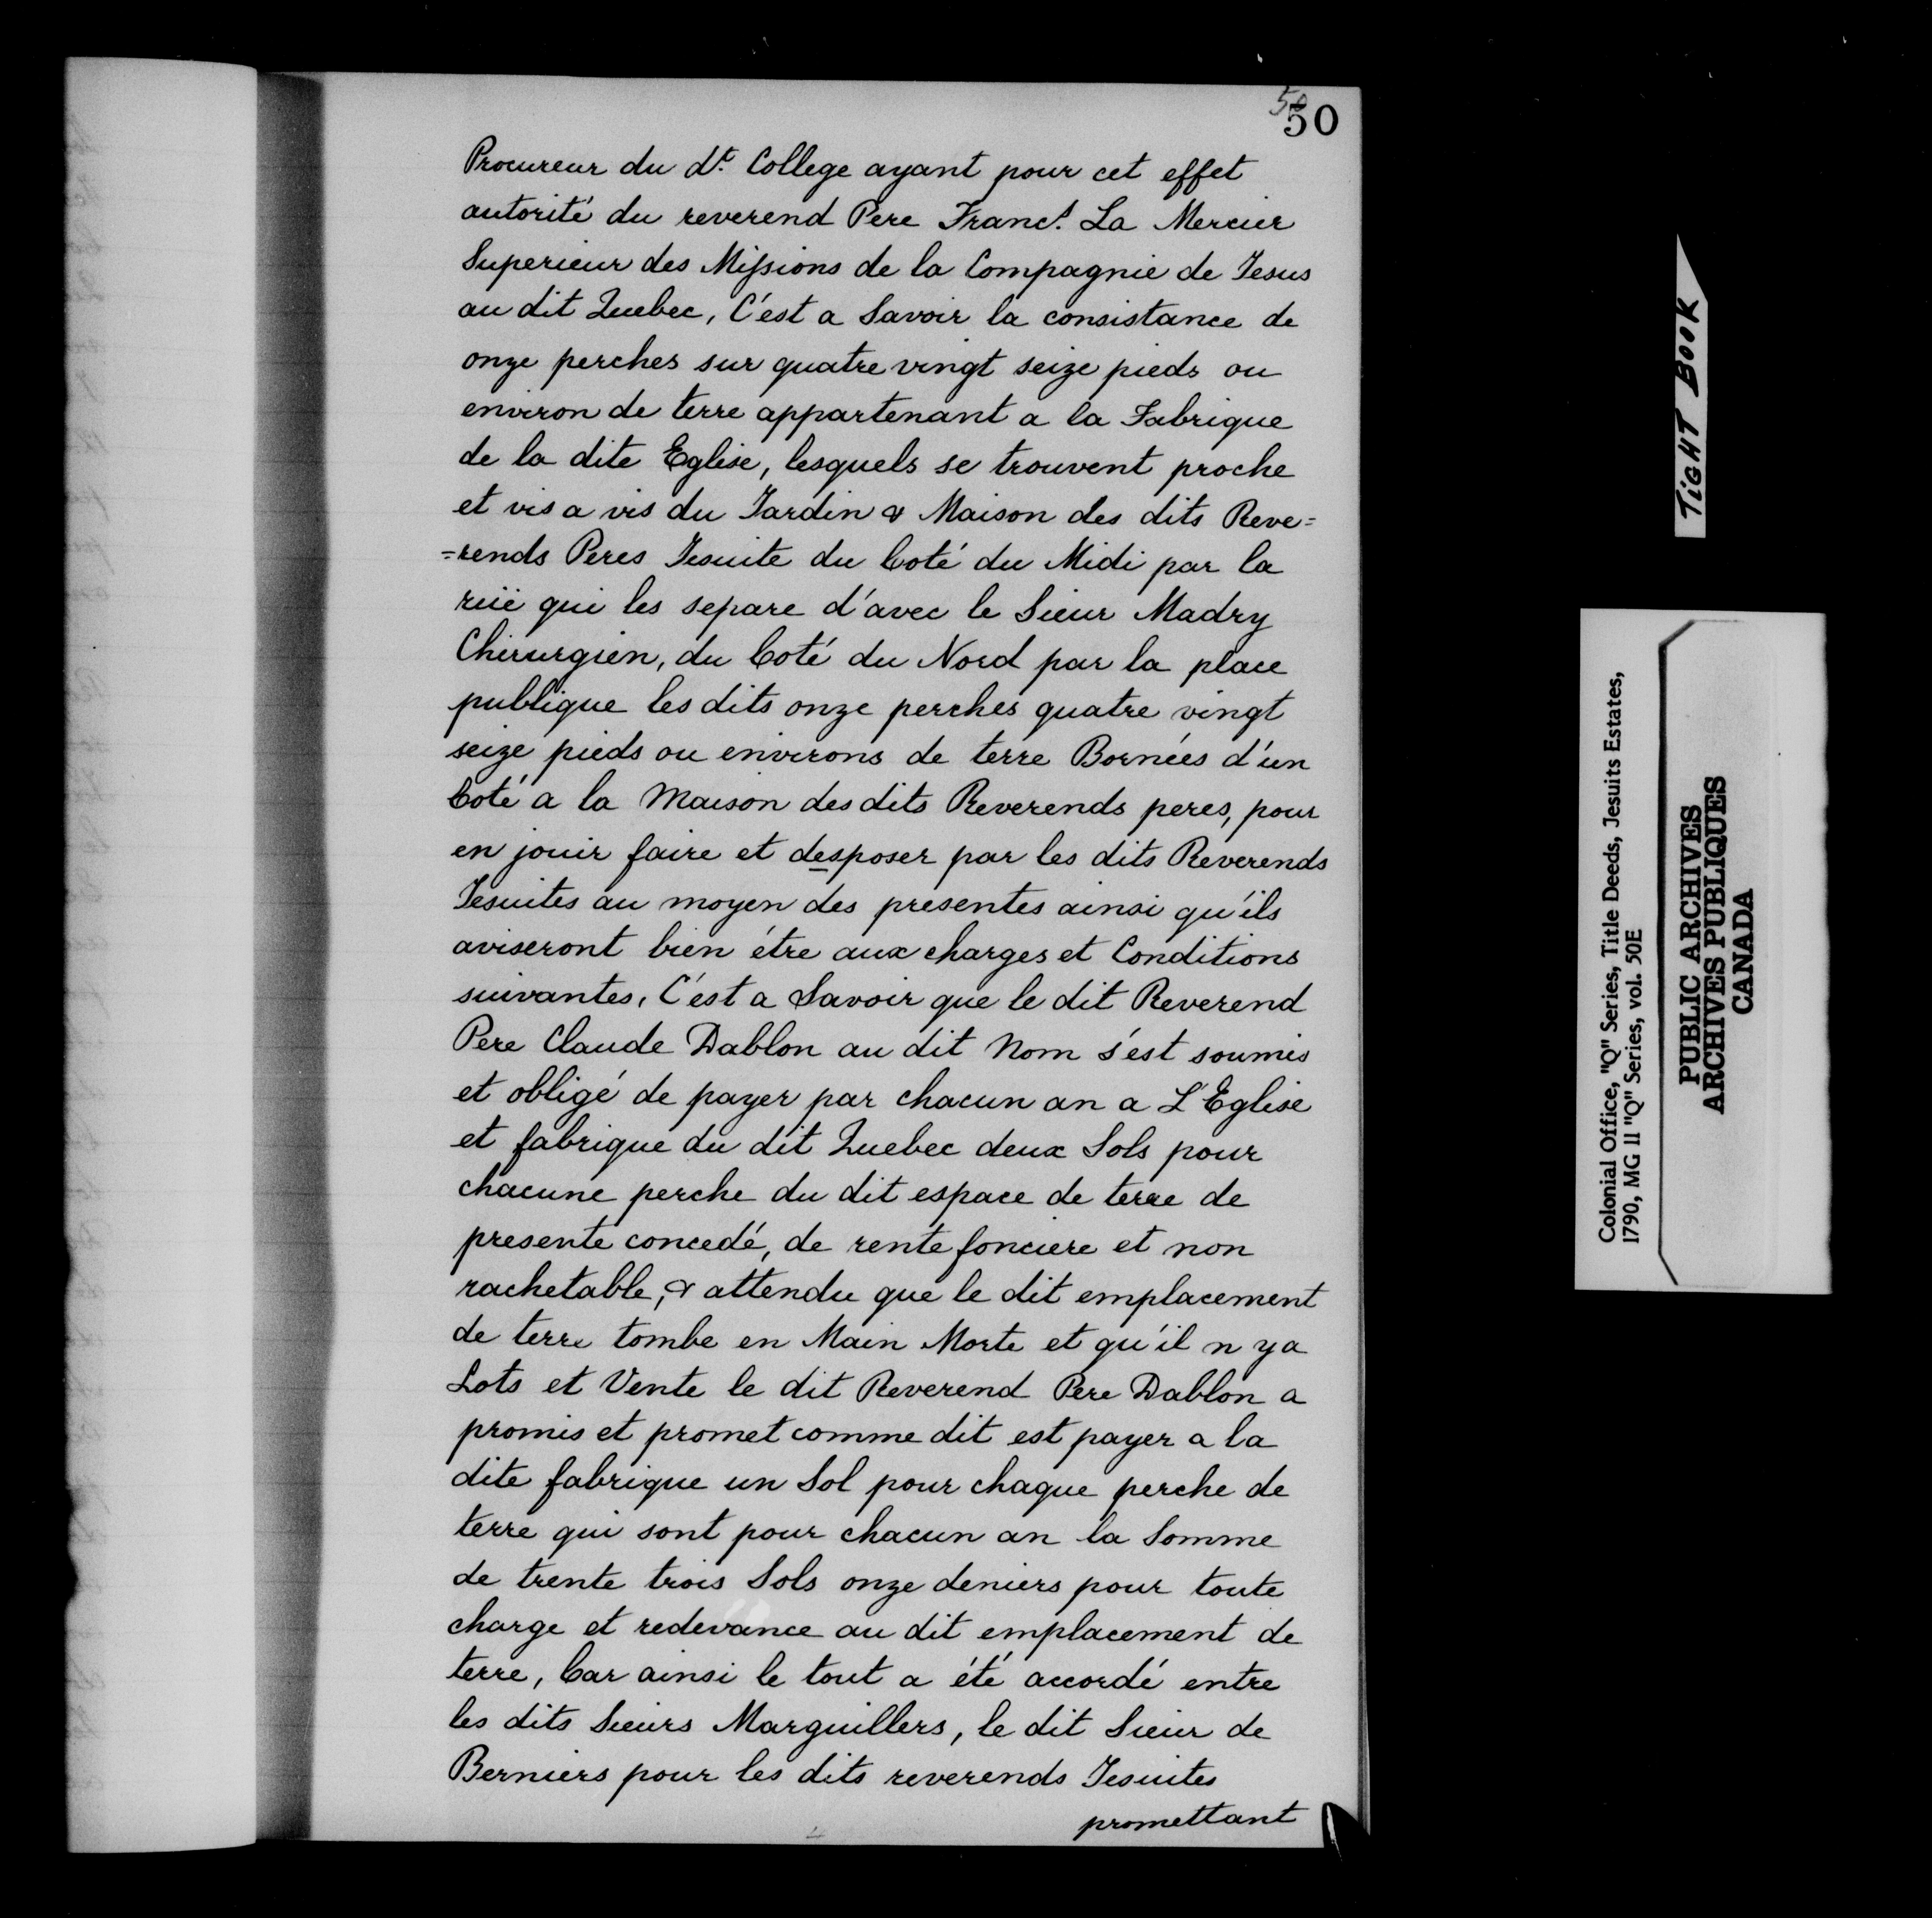 50
50
Procureur du dt. College ayant pour cet effet
autorité du reverend Pere Francs. La Mercier
Superieur des Missions de la Compagnie de Jesus
au dit Quebec, C'est a Savoir la consistance de
onze perches sur quatre vingt seize pieds ou
environ de terre appartenant a la Fabrique
de la dite Eglise, lesquels se trouvent proche
et vis a vis du Jardin & Maison des dits Reve=
=rends Peres Jesuite du Coté du Midi par la
rüe qui les separe d'avec le Sieur Madry
Chirurgien, du Coté du Nord par la place
publique les dits onze perches quatre vingt
seize pieds ou environs de terre Bornées d'un
Coté a la Maison des dits Reverends peres, pour
en jouir faire et desposer par les dits Reverends
Jesuites au moyen des presentes ainsi qu'ils
aviseront bien étre aux charges et Conditions
suivantes, C'est a Savoir que le dit Reverend
Pere Claude Dablon au dit Nom s'est soumis
et obligé de payer par chacun an a L'Eglise
et fabrique du dit Quebec deux Sols pour
chacune perche du dit espace de terre de
presente concedé, de rente fonciere et non
rachetable, & attendu que le dit emplacement
de terre tombe en Main Morte et qu'il n y a
Lots et Vente le dit Reverend Pere Dablon a
promis et promet comme dit est payer a la
dite fabrique un Sol pour chaque perche de
terre qui sont pour chacun an la Somme
de trente trois Sols onze deniers pour toute
charge et redevance au dit emplacement de
terre, Car ainsi le tout a été accordé entre
les dits Sieurs Marguillers, le dit Sieur de
Berniers pour les dits reverends Jesuites
promettant
TIGHT BOOK
Colonial Office, "Q" Series, Title Deeds, Jesuits Estates,
1790, MG 11 "Q" Series, vol. 50E
PUBLIC ARCHIVES
ARCHIVES PUBLIQUES
CANADA